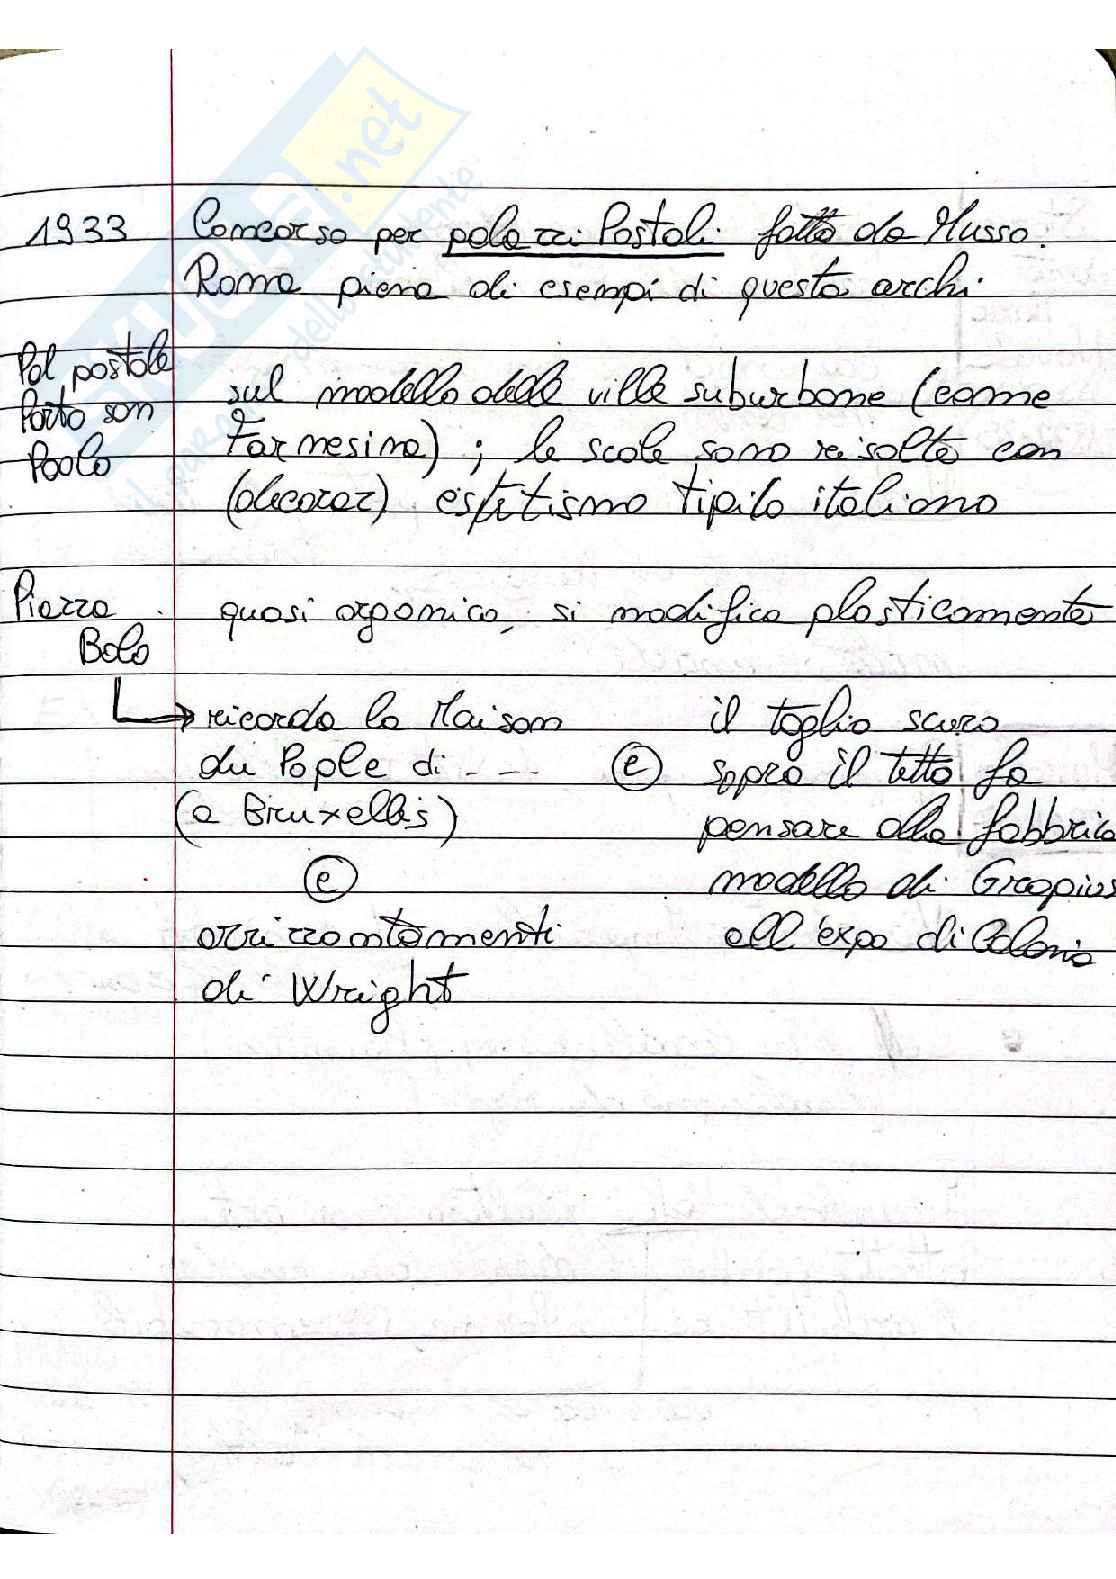 1933 Concorso per palazzi Postali fatto da Musso.
Roma piena di esempi di questa archi.
Pal. postale
Porto San
Paolo
sul modello delle ville suburbane (come
Farnesina) ; le scale sono risolte con
(decorar) estetismo tipico italiano
Piazza
Bolo
quasi organico, si modifica plasticamente
ricorda la Maison
du Pople di ----
(a Bruxelles)
e
orizzontamenti
di Wright
e
il taglio scuro
sopra il tetto fa
pensare alla fabbrica
modello di Gropius
all'expo di Colonia
.net